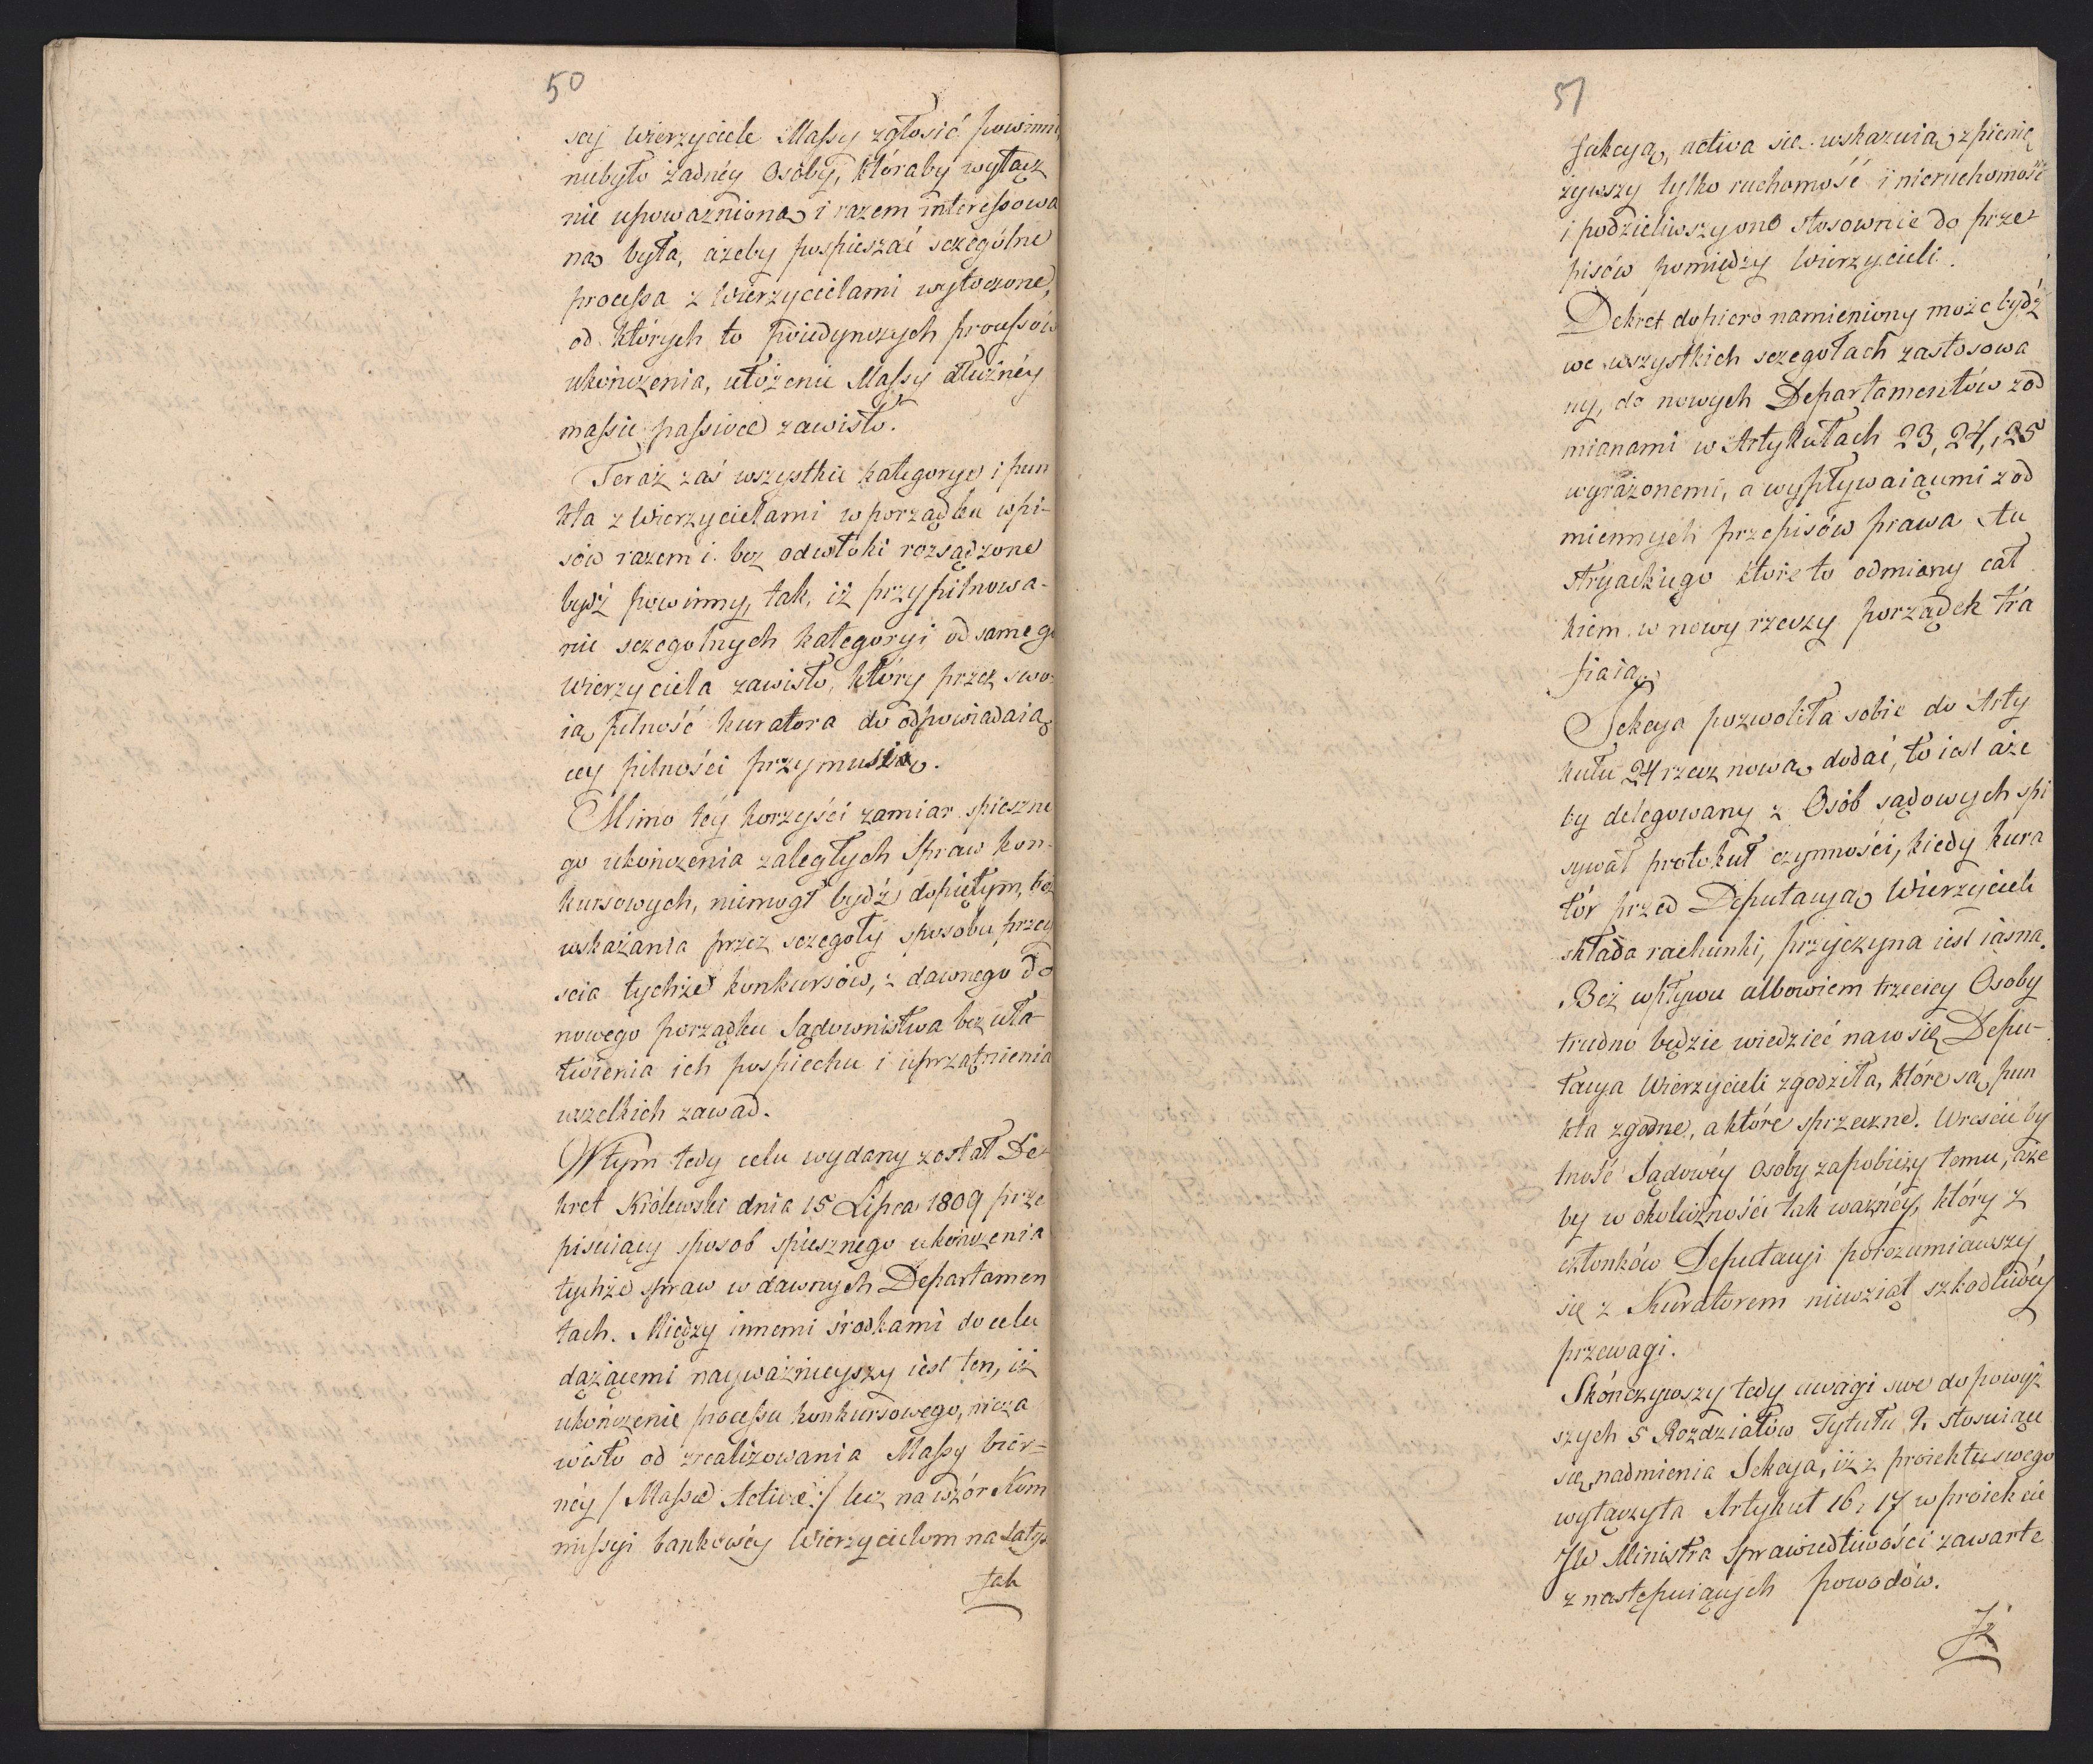 50
scy Wierzyciele Massy zgłosić powinni
niebyło żadnéy Osoby, któraby wyłącz
nie upoważniona i razem interessowa
na była, ażeby pospieszać sczególne
processa z Wierzycielami wytoczone,
od których to poiedynczych processów
ukończenia, ułożenie Massy dłużnéy
massie passivæ zawisło.
Teraz zaś wszystkie kategorye i pun
kta z Wierzycielami w porządku wpi-
sów razem i bez odwłoki rozsądzone
bydź powinny, tak, iż przypilnowa-
nie sczegolnych kategoryi od samego
Wierzyciela zawisło, który przez swo-
ią pilność kuratora do odpowiadaią
cey pilności przymusia.
Mimo téy korzyści zamiar spieszne
go ukończenia zaległych Spraw kon-
kursowych, niemogł bydź dopiętym, bez
wskazania przez sczegoły sposobu przey
scia tychże konkursów, z dawnego do
nowego porządku Sądownistwa bez uła
twienia ich pospiechu i uprzątnienia
wszelkich zawad.
W tym tedy celu wydany został De-
kret Królewski dnia 15 Lipca 1809 prze
pisuiący sposob spiesznego ukończenia
tychże spraw w dawnych Departamen
tach. Między innemi środkami do celu
dążącemi nayważnieyszy iest ten, iż
ukończenie processu konkursowego, nieza
wisło od zrealizowania Massy bier=
néy /Massæ Activæ:/ lecz na wzór Kom
missyi bankowéy Wierzycielom na Satys
fak
51
fakcyą, activa się wskazuią spienię
żywszy tylko ruchomość i nieruchomość
i podzieliwszy one stosownie do prze-
pisów pomiędzy Wierzycieli.
Dekret dopiero namieniony może bydź
we wszystkich sczegołach zastosowa
ny, do nowych Departamentów z od
mianami w Artykułach 23, 24, i 25
wyrażonemi, a wypływaiącemi z od
miennych przepisów prawa Au
stryackiego które to odmiany cał
kiem w nowy rzeczy porządek tra
fiaią.
Sekcya pozwoliła sobie do Arty
kułu 24 rzecz nową dodać, to iest aże
by delegowany z Osób sądowych spi
sywał protokuł czynności, kiedy kura
tór przed Deputacyą Wierzycieli
składa rachunki, przyczyna iest iasna.
Bez wpływu albowiem trzeciey Osoby
trudno będzie wiedzieć na w się Depu-
tacya Wierzycieli zgodziła, które są pun
kta zgodne, a które sprzeczne. Wreście by
tność Sądowéy Osoby zapobieży temu, aże
by w okoliczności tak ważnéy, który z
członków Deputacyi porozumiawszy
się z Kuratorem niewziął szkodliwéy
przewagi.
Skończywszy tedy uwagi swe do powyż
szych 5 Rozdziałów Tytułu 9. stosuiące
się, nadmienia Sekcya, iż z proiektu swego
wyłączyła Artykuł 16 i 17 w proiekcie
JW Ministra Sprawiedliwości zawarte
z następuiących powodów.
Iż